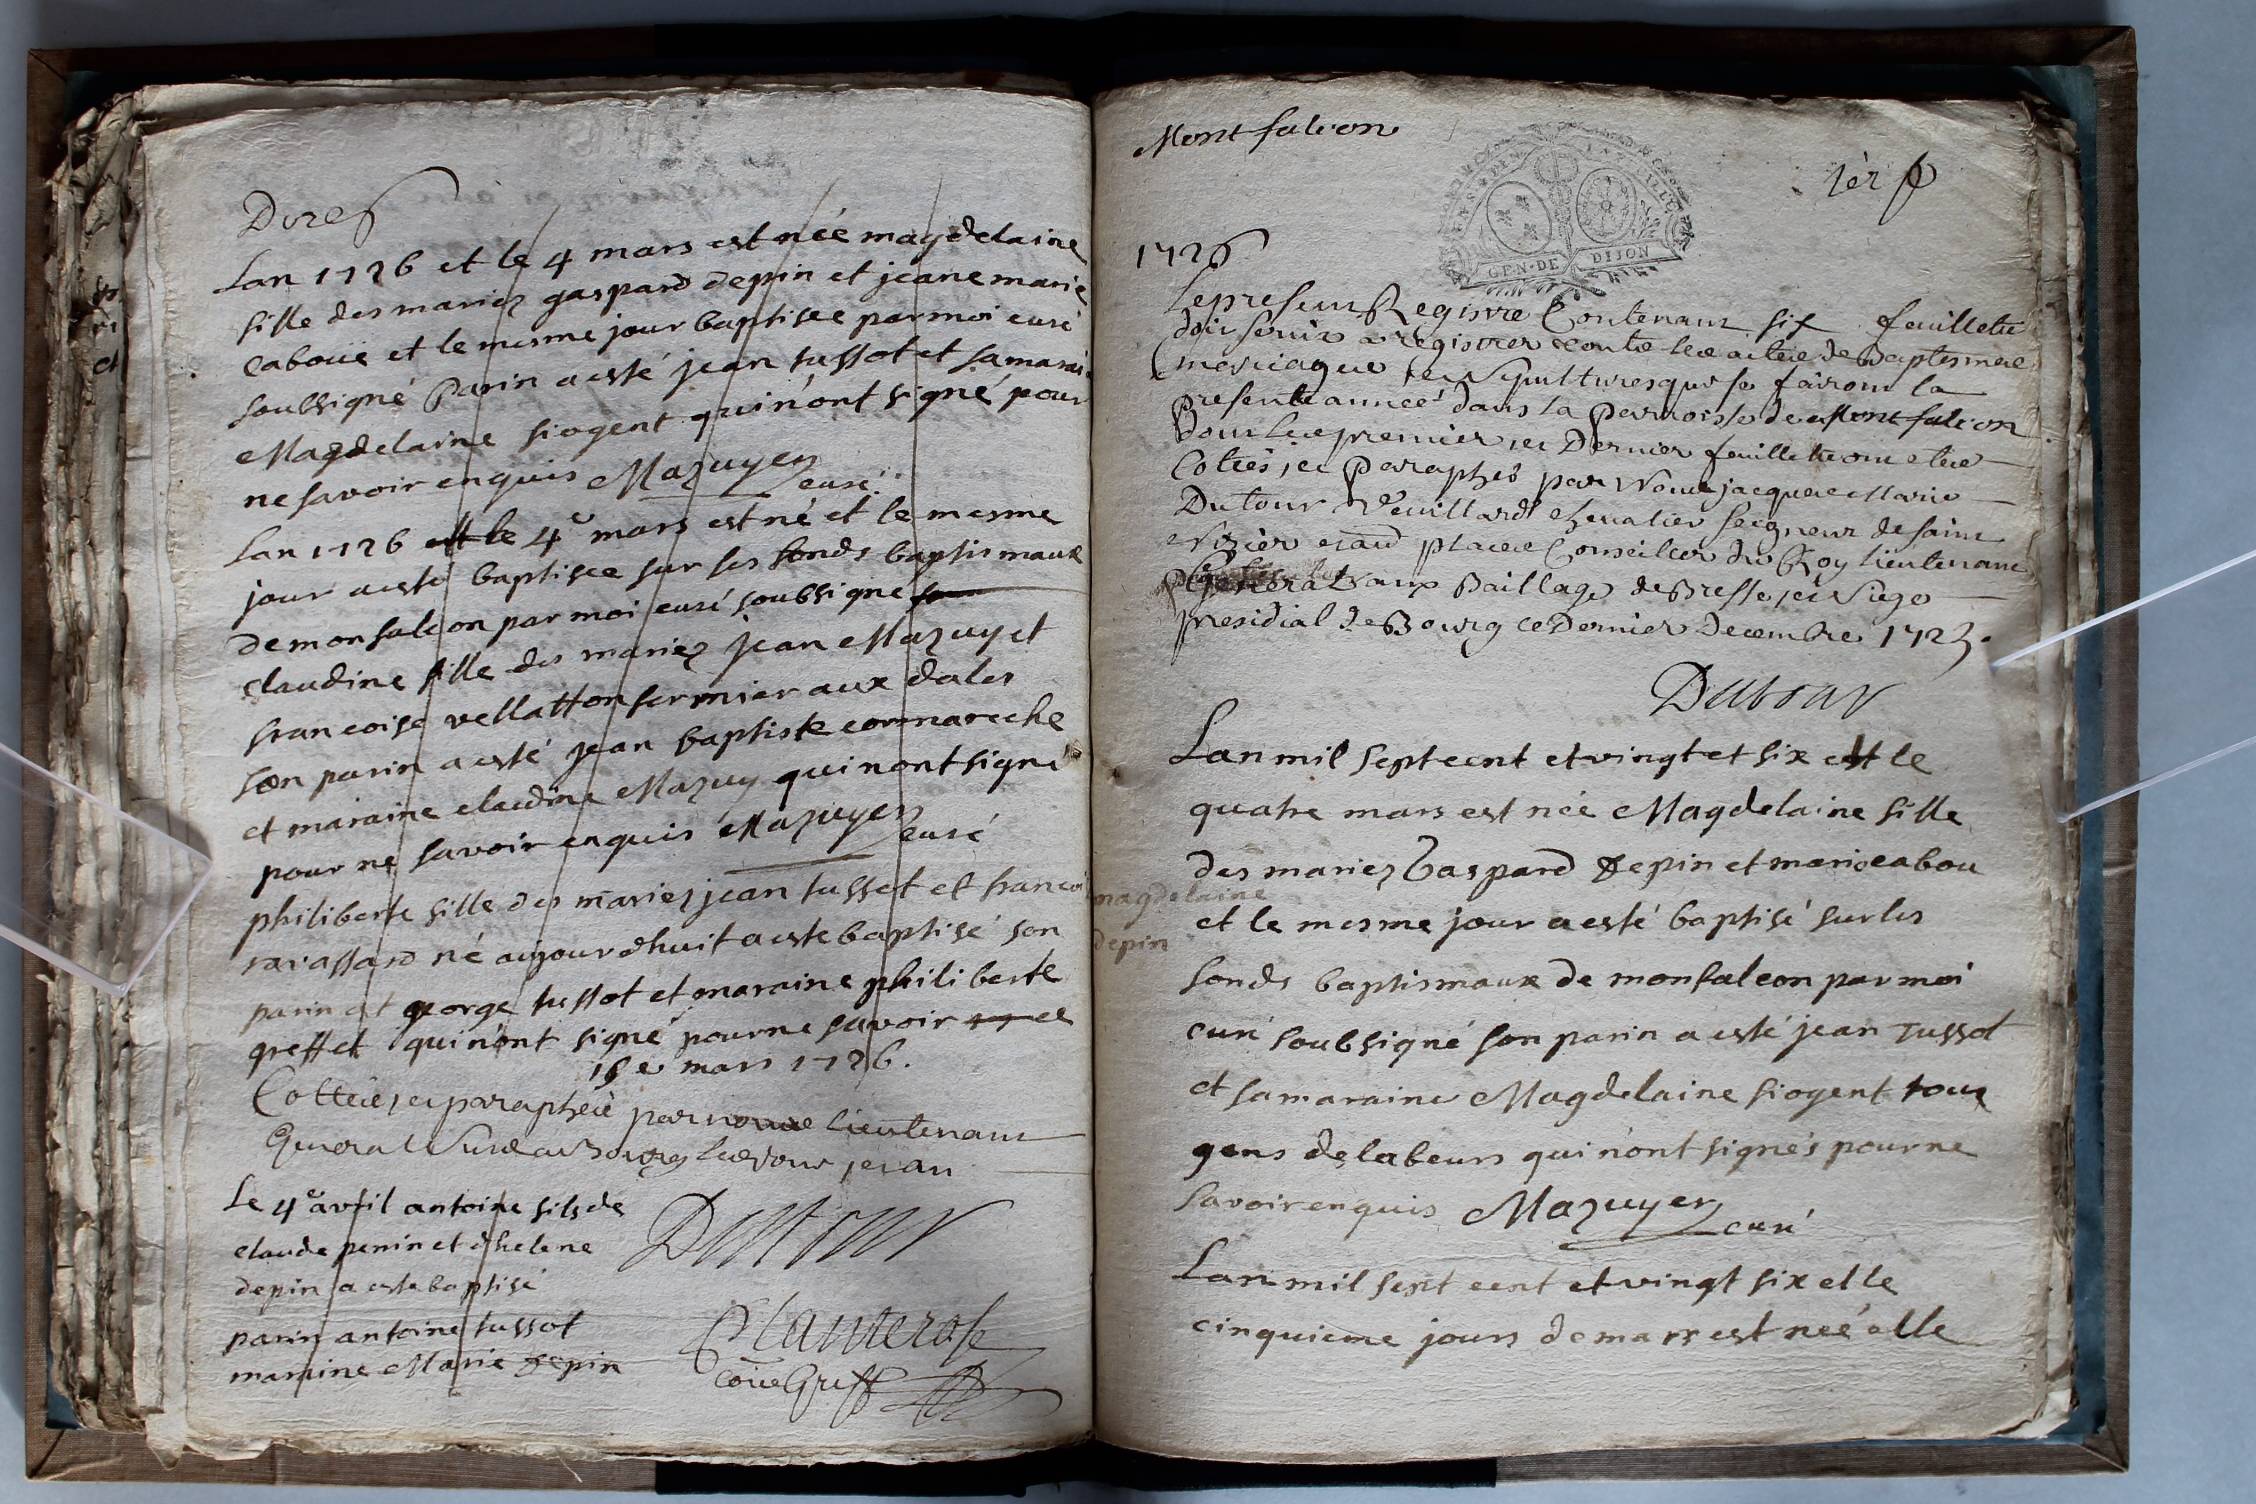 Lan 1726 et le 4 mars est née magdelaine
fille des mariez gaspard depin et jeane marie
caboue et le mesme jour baptisee par moi curé
soubsigné parin a esté jean tussot et sa marai
Magdelaine siogent qui nónt signé pour
ne savoir enquis Mazuyer
curé
Lan 1726 et le 4e mars est né et le mesme
jour a esté baptisee sur les fonds baptismaux
de monfalcon par moi curé soubsigne
claudine fille des mariez jean Mazuy et
francoise vellatton fermier aux dales
son parin a esté jean baptiste commareche
et maraine claudine Mazuy qui nont signé
pour ne savoir enquis Mazuyer
curé
philiberte fille des mariez jean tussot et francoi
né aujourdhuit a este baptisé son
parin et george tussot et maraine philiberte
greffet qui nónt signé pour ne savoir ce
16e mars 1726.
Cottée et paraphée par nous lieutenant
General a Bourg les jour et an
Le 4e avril antoine fils de
claude penin et dhelene
depin a este baptisé
parin antoine tussot
maraine Marie depin
Dutour
Planterose
Greff
Montfalcon
1er
GEN · DE DIJON
1726
Le present Registre Contenant six feuillets
doit servir a registrer toute les actes de Baptesmes
mariages et sepultures qui se fairont la
presente année dans la parroisse de Montfalcon
dont les premier et Dernier feuillets ont etés
Cottés et Paraphés par Nous jacques Marie
Dutour Veuillard chevalier seigneur de saint
Nizier et aud places Conseiller du Roy lieutenant
General aux Baillage de Bresse et Siege
presidial de Bourg ce Dernier Decembre 1725.
Dutour
Lan mil sept cent et vingt et six et le
quatre mars est née Magdelaine fille
des mariez Gaspard Depin et marie cabou
magdelaine
et le mesme jour a esté baptisé sur les
depin
fonds baptismaux de monfalcon par moi
curé soubsigné son parin a esté jean Tussot
et sa maraine Magdelaine siogent tous
gens de labeurs qui nónt signés pour ne
savoir enquis Mazuyer
curé
Lan mil sept cent et vingt six et le
cinquieme jours de mars est neé elle